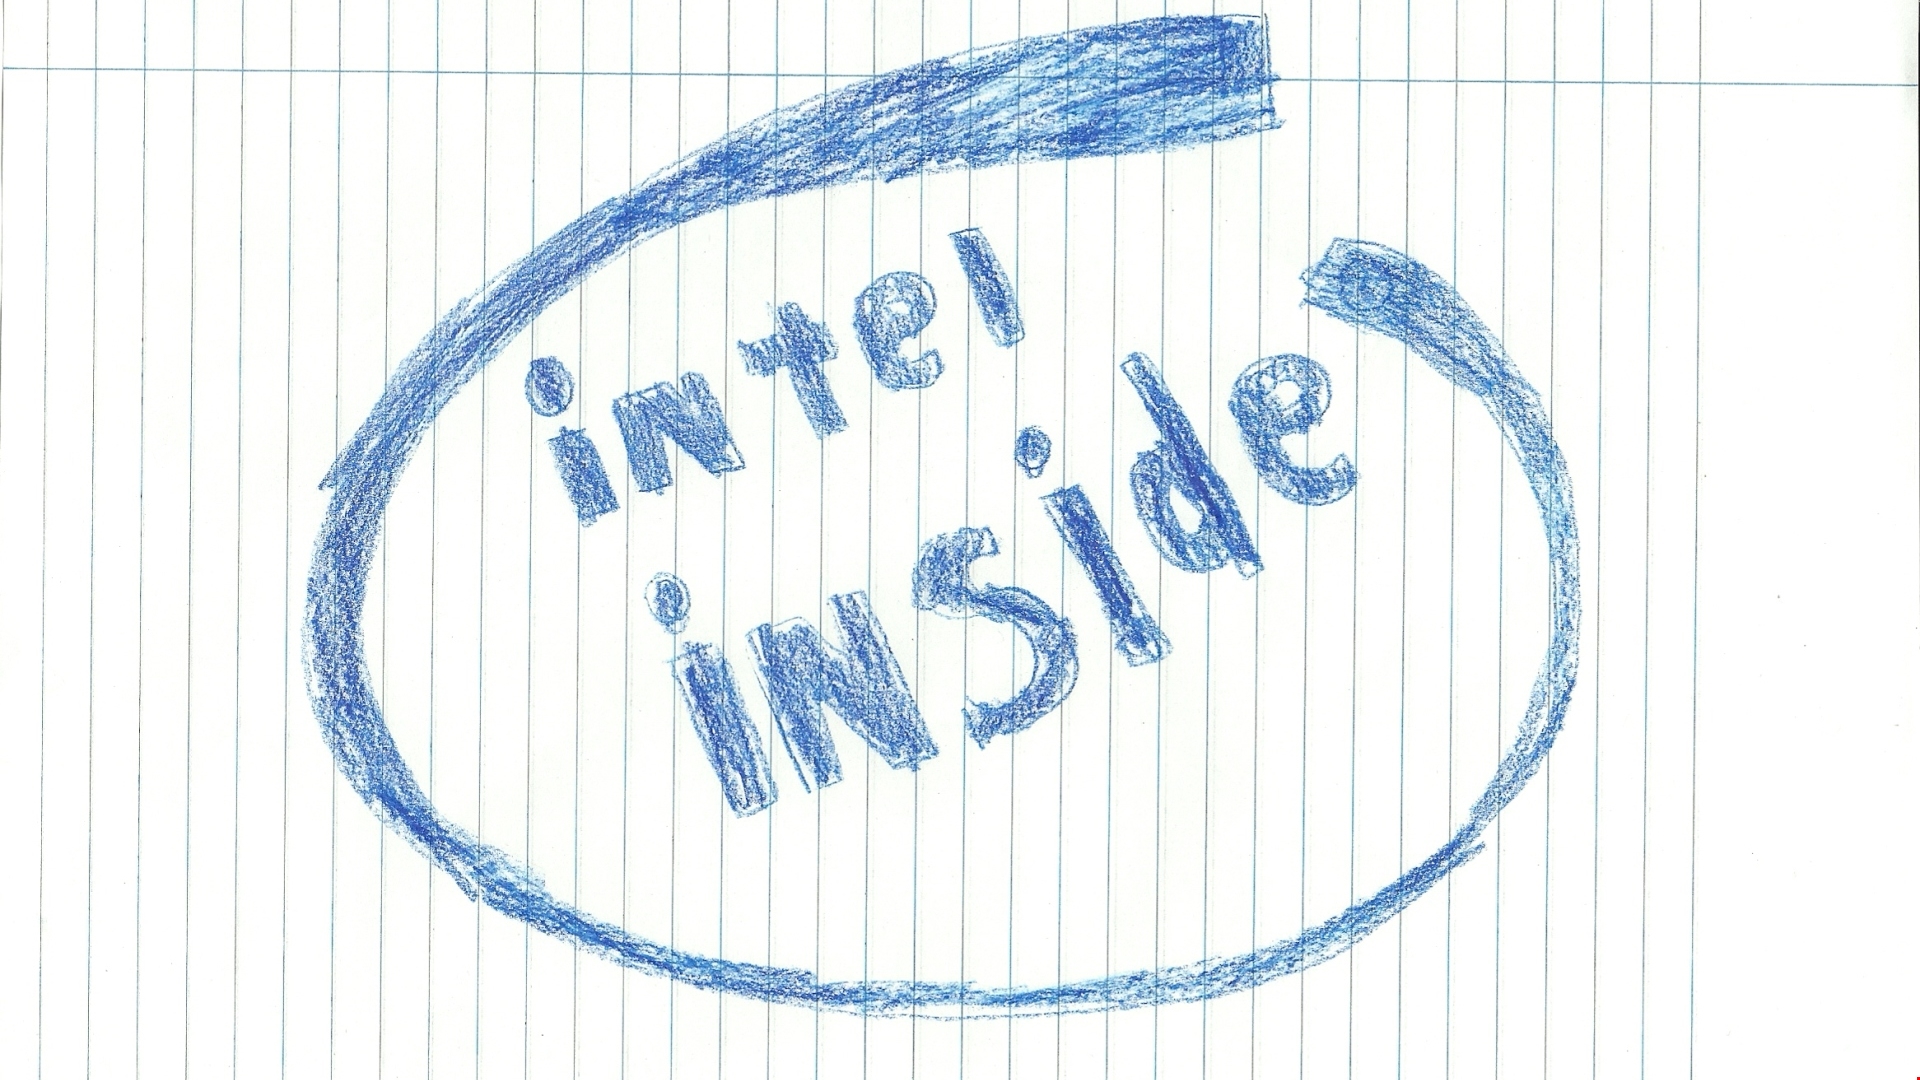 intel
inside